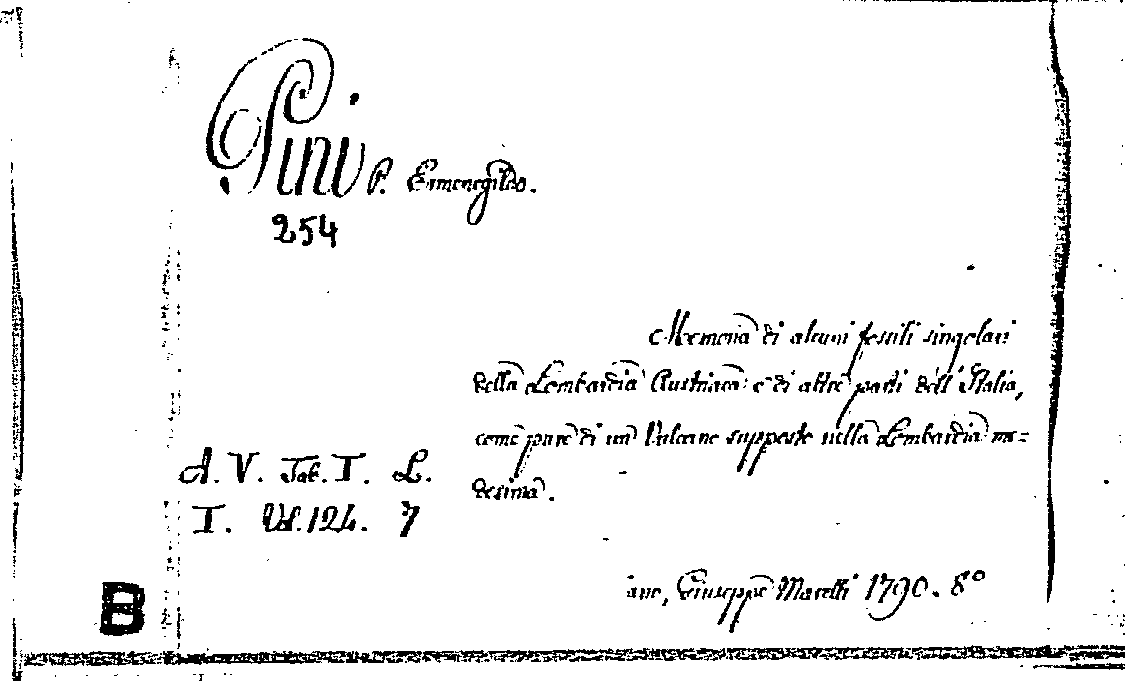 Pini P. Ermenegildo.
254
Memoria di alcuni fossili singolari
della Lombardia Austriaca e di altre parti dell'Italia,
come pure di un Vulcano supposto nella Lombardia me=
desima.
A. V. Tab. I. L.
I. Vol. 124. 7
ano, Giuseppe Marelli 1790. 8°
B